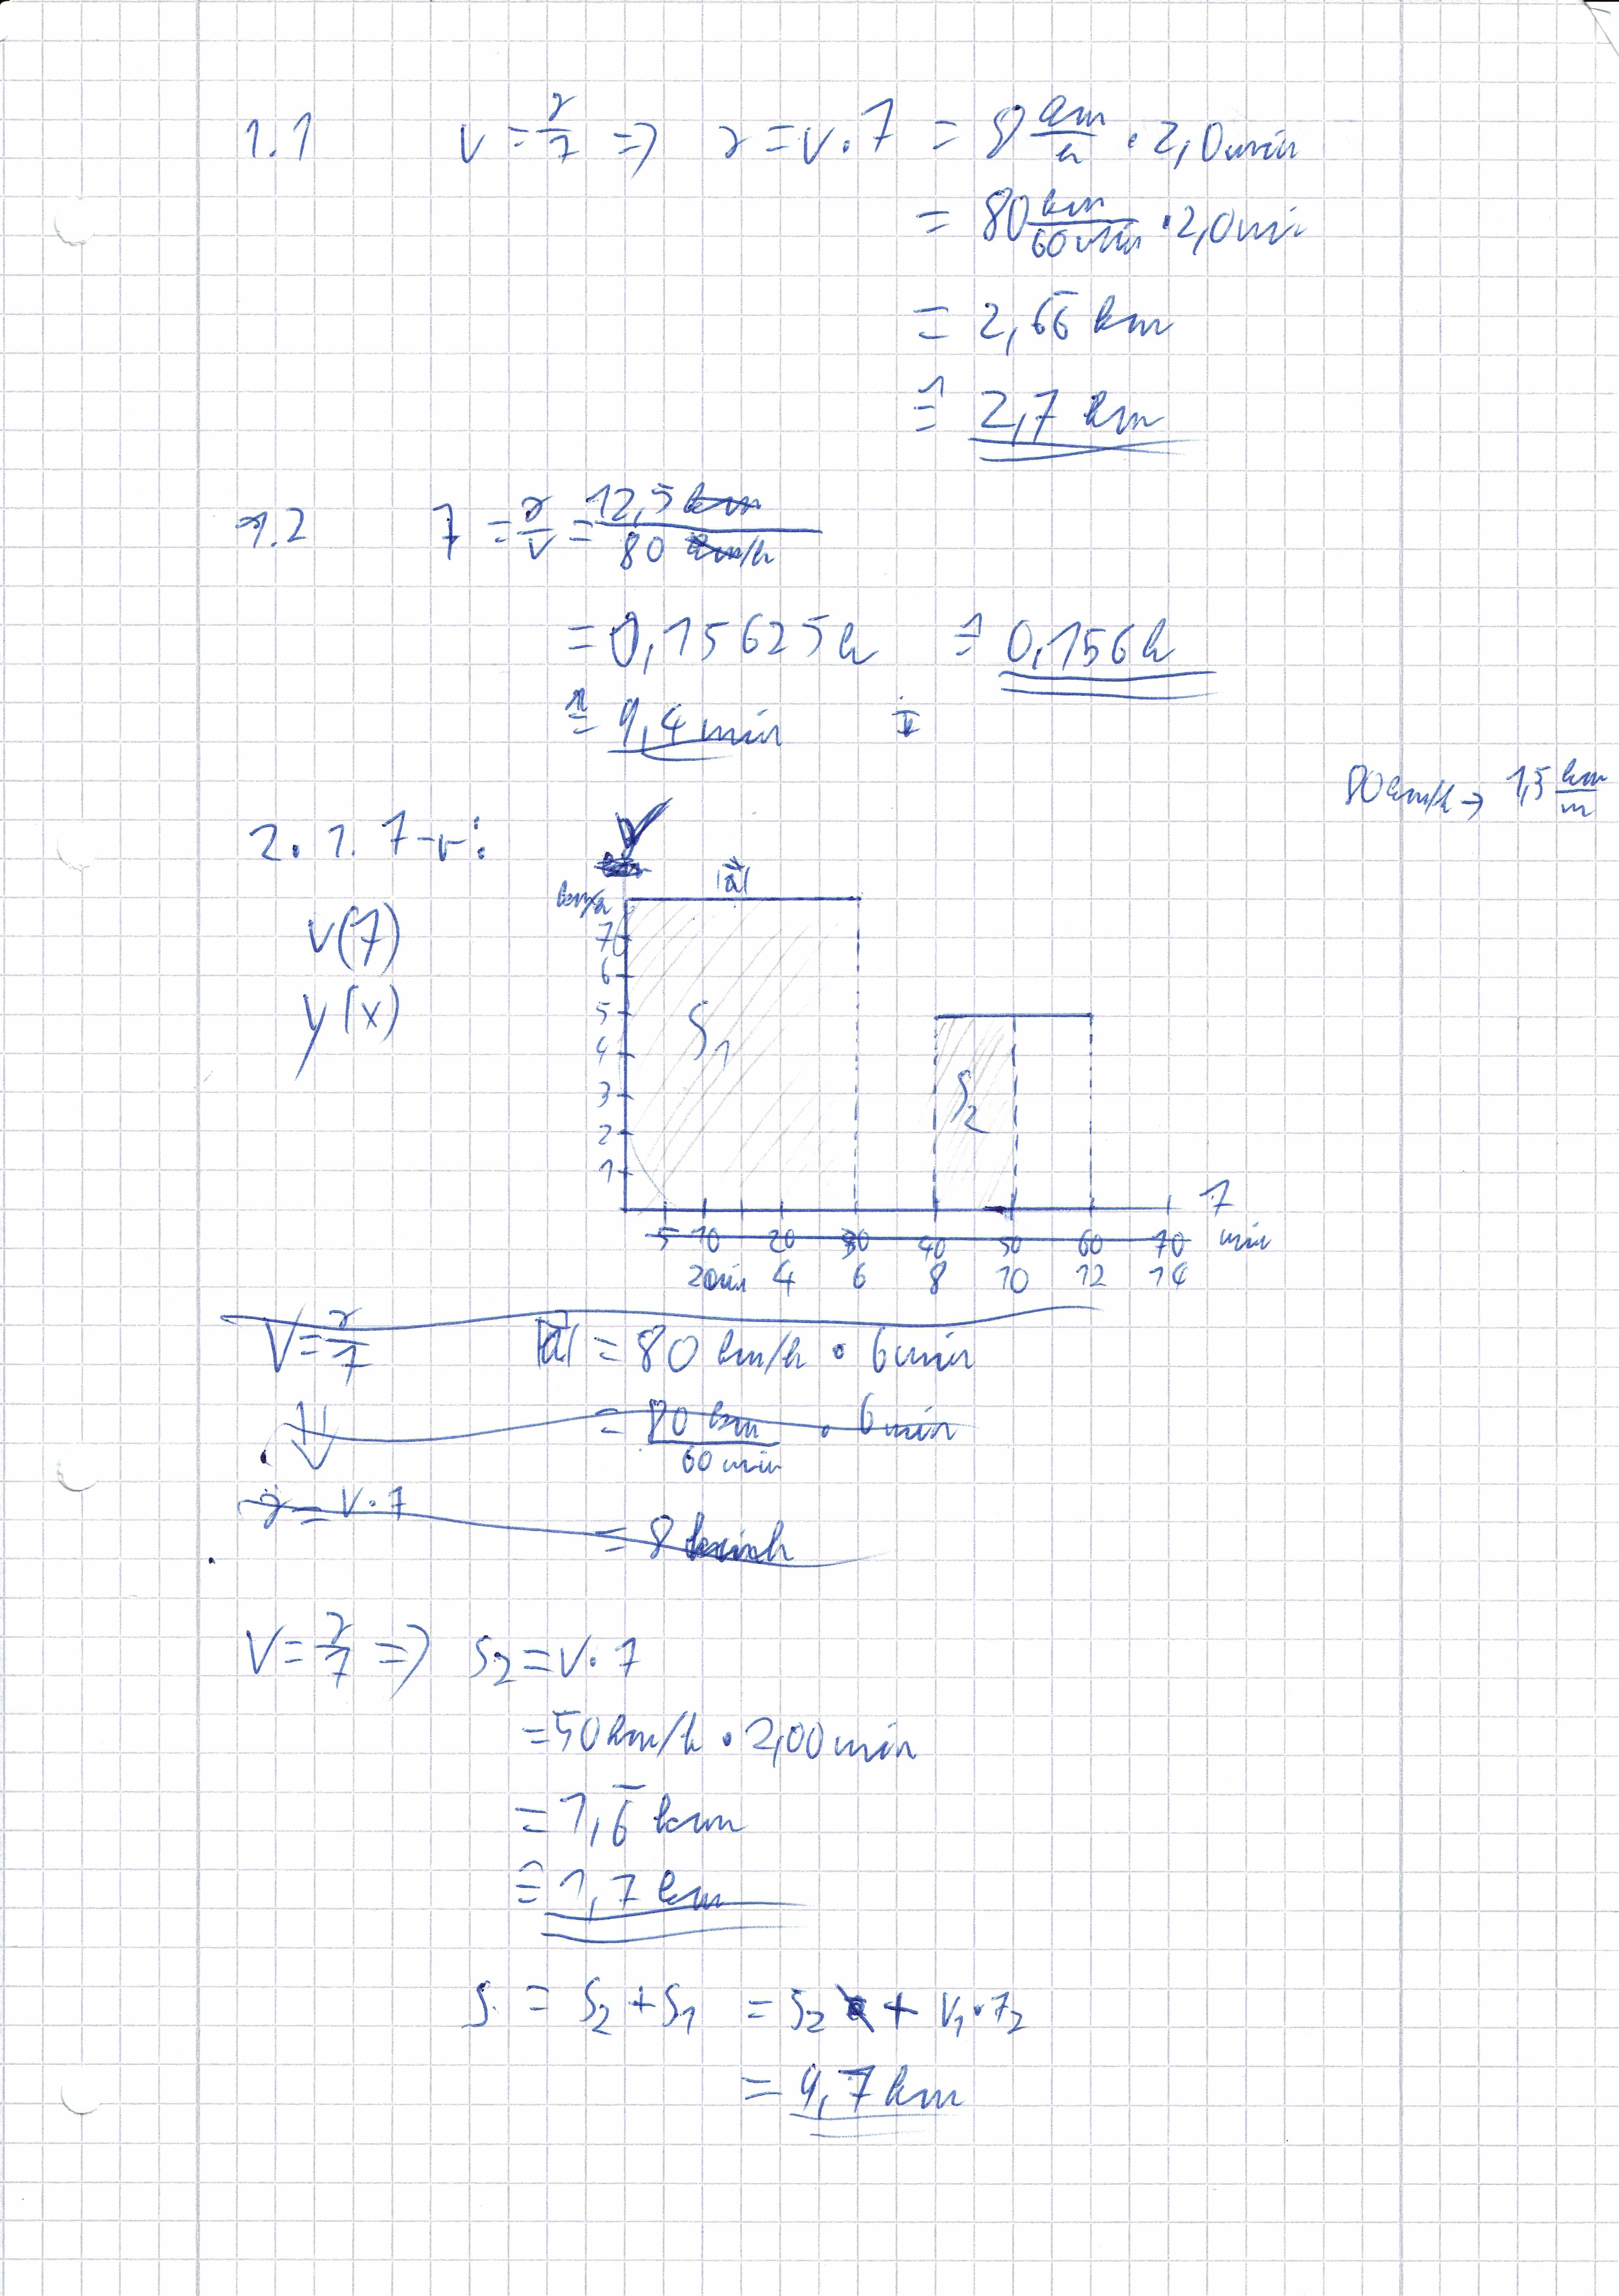 1.1 v = s/t => s = v · t = 8 km/h · 2,0 min
= 80 km/60 min · 2,0 mi
= 2,66̅ km
≙ 2,7 km
1.2 t = s/v = 12,5 km/80 km/h
= 0,15625 h ≙ 0,156 h
≙ 9,4 min
80 km/h → 1,5 km/m
2. 1. t-v:
v
|a⃗|
km/h
v(t)
y(x)
7
6
5
4
3
2
1
S1
S2
t
min
5 10 20 30 40 50 60 70
2min 4 6 8 10 12 14
V = s/t |a⃗| = 80 km/h · 6 min
= 80 km/60 min · 6 min
s = v · t
= 8
V = s/t => S2 = V · t
= 50 km/h · 2,00 min
= 1,6̅ km
≙ 1,7 km
S = S2 + S1 = S2 + V1 · t2
= 9,7 km